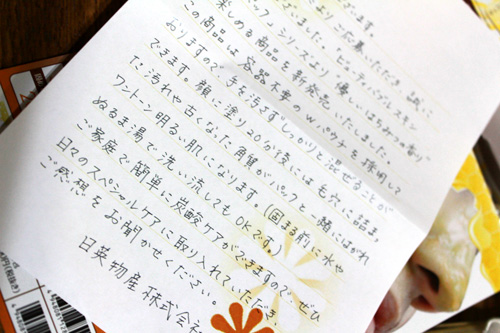 ざいます。
ご応募いただき、誠に
ました。「ビーチ・バブルスキン
パック」シリーズより「優しいはちみつの香り
楽しめる商品を新発売いたしました。
この商品は、容器不要のWパウチを採用して
おりますので、手を汚さずしっかりと混ぜることが
できます。顔に塗り20分後には、毛穴に詰まっ
た汚れや古くなった角質がパックと一緒にはがれ
ワントーン明るい肌になります。(固まる前に水や
ぬるま湯で洗い流してもOKです。)
ご家庭で簡単に炭酸ケアができますので、ぜひ
日々のスペシャルケアに取り入れていただき、
ご感想をお聞かせください。
日英物産株式会社